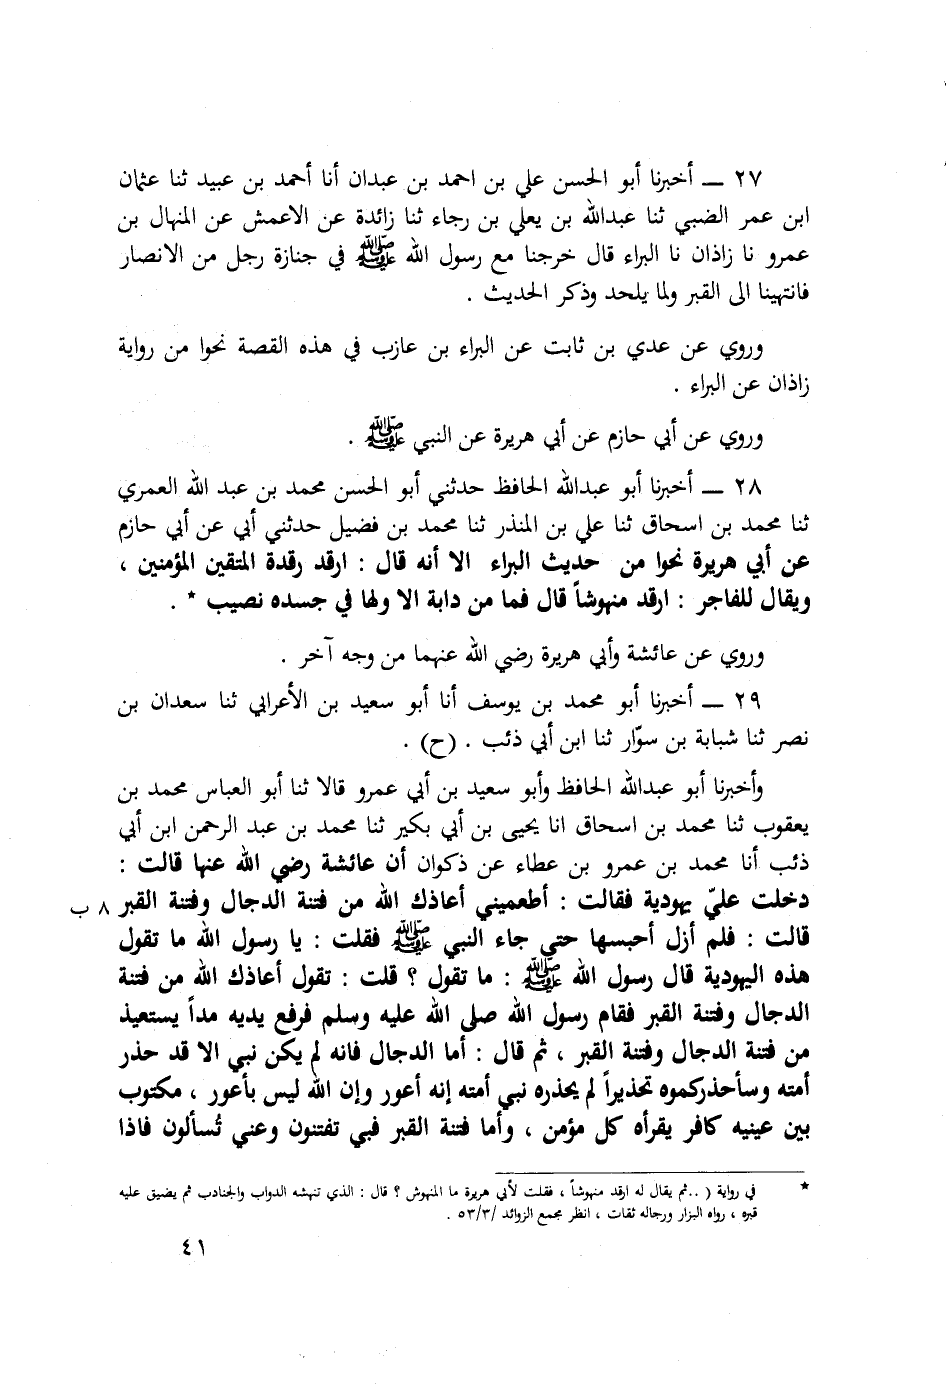 ٢٧ ــ أخبرنا أبو الحسن علي بن احمد بن عبدان أنا أحمد بن عبيد ثنا عثمان
ابن عمر الضبي ثنا عبدالله بن يعلي بن رجاء ثنا زائدة عن الاعمش عن المنهال بن
عمرو نا زاذان نا البراء قال خرجنا مع رسول الله ﷺ في جنازة رجل من الانصار
فانتهينا الى القبر ولما يلحد وذكر الحديث .
وروي عن عدي بن ثابت عن البراء بن عازب في هذه القصة نحوا من رواية
زاذان عن البراء .
وروي عن أبي حازم عن أبي هريرة عن النبي ﷺ .
٢٨ ــ أخبرنا أبو عبدالله الحافظ حدثني أبو الحسن محمد بن عبد الله العمري
ثنا محمد بن اسحاق ثنا علي بن المنذر ثنا محمد بن فضيل حدثني أبي عن أبي حازم
عن أبي هريرة نحوا من حديث البراء الا أنه قال : ارقد رقدة المتقين المؤمنين ،
ويقال للفاجر : ارقد منهوشاً قال فما من دابة الا ولها في جسده نصيب * .
وروي عن عائشة وأبي هريرة رضي الله عنهما من وجه آخر .
٢٩ ــ أخبرنا أبو محمد بن يوسف أنا أبو سعيد بن الأعرابي ثنا سعدان بن
نصر ثنا شبابة بن سوّار ثنا ابن أبي ذئب . (ح) .
وأخبرنا أبو عبدالله الحافظ وأبو سعيد بن أبي عمرو قالا ثنا أبو العباس محمد بن
يعقوب ثنا محمد بن اسحاق انا يحيى بن أبي بكير ثنا محمد بن عبد الرحمن ابن أبي
ذئب أنا محمد بن عمرو بن عطاء عن ذكوان أن عائشة رضي الله عنها قالت :
دخلت عليّ يهودية فقالت : أطعميني أعاذك الله من فتنة الدجال وفتنة القبر ٨ ب
قالت : فلم أزل أحبسها حتى جاء النبي ﷺ فقلت : يا رسول الله ما تقول
هذه اليهودية قال رسول الله ﷺ : ما تقول ؟ قلت : تقول أعاذك الله من فتنة
الدجال وفتنة القبر فقام رسول الله صلى الله عليه وسلم فرفع يديه مداً يستعيذ
من فتنة الدجال وفتنة القبر ، ثم قال : أما الدجال فانه لم يكن نبي الا قد حذر
أمته وسأحذركموه تحذيراً لم يحذره نبي أمته إنه أعور وإن الله ليس بأعور ، مكتوب
بين عينيه كافر يقرأه كل مؤمن ، وأما فتنة القبر فبي تفتنون وعني تُسألون فاذا
* في رواية ( ..ثم يقال له ارقد منهوشاً ، فقلت لأبي هريرة ما المنهوش ؟ قال : الذي تنهشه الدواب والجنادب ثم يضيق عليه
قبره ، رواه البزار ورجاله ثقات ، انظر مجمع الزوائد /٥٣/٣ .
٤١